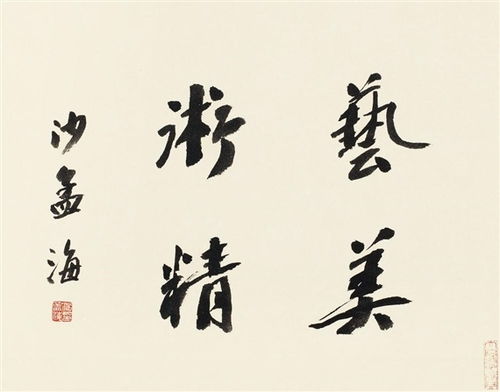 藝美
術精
沙孟海